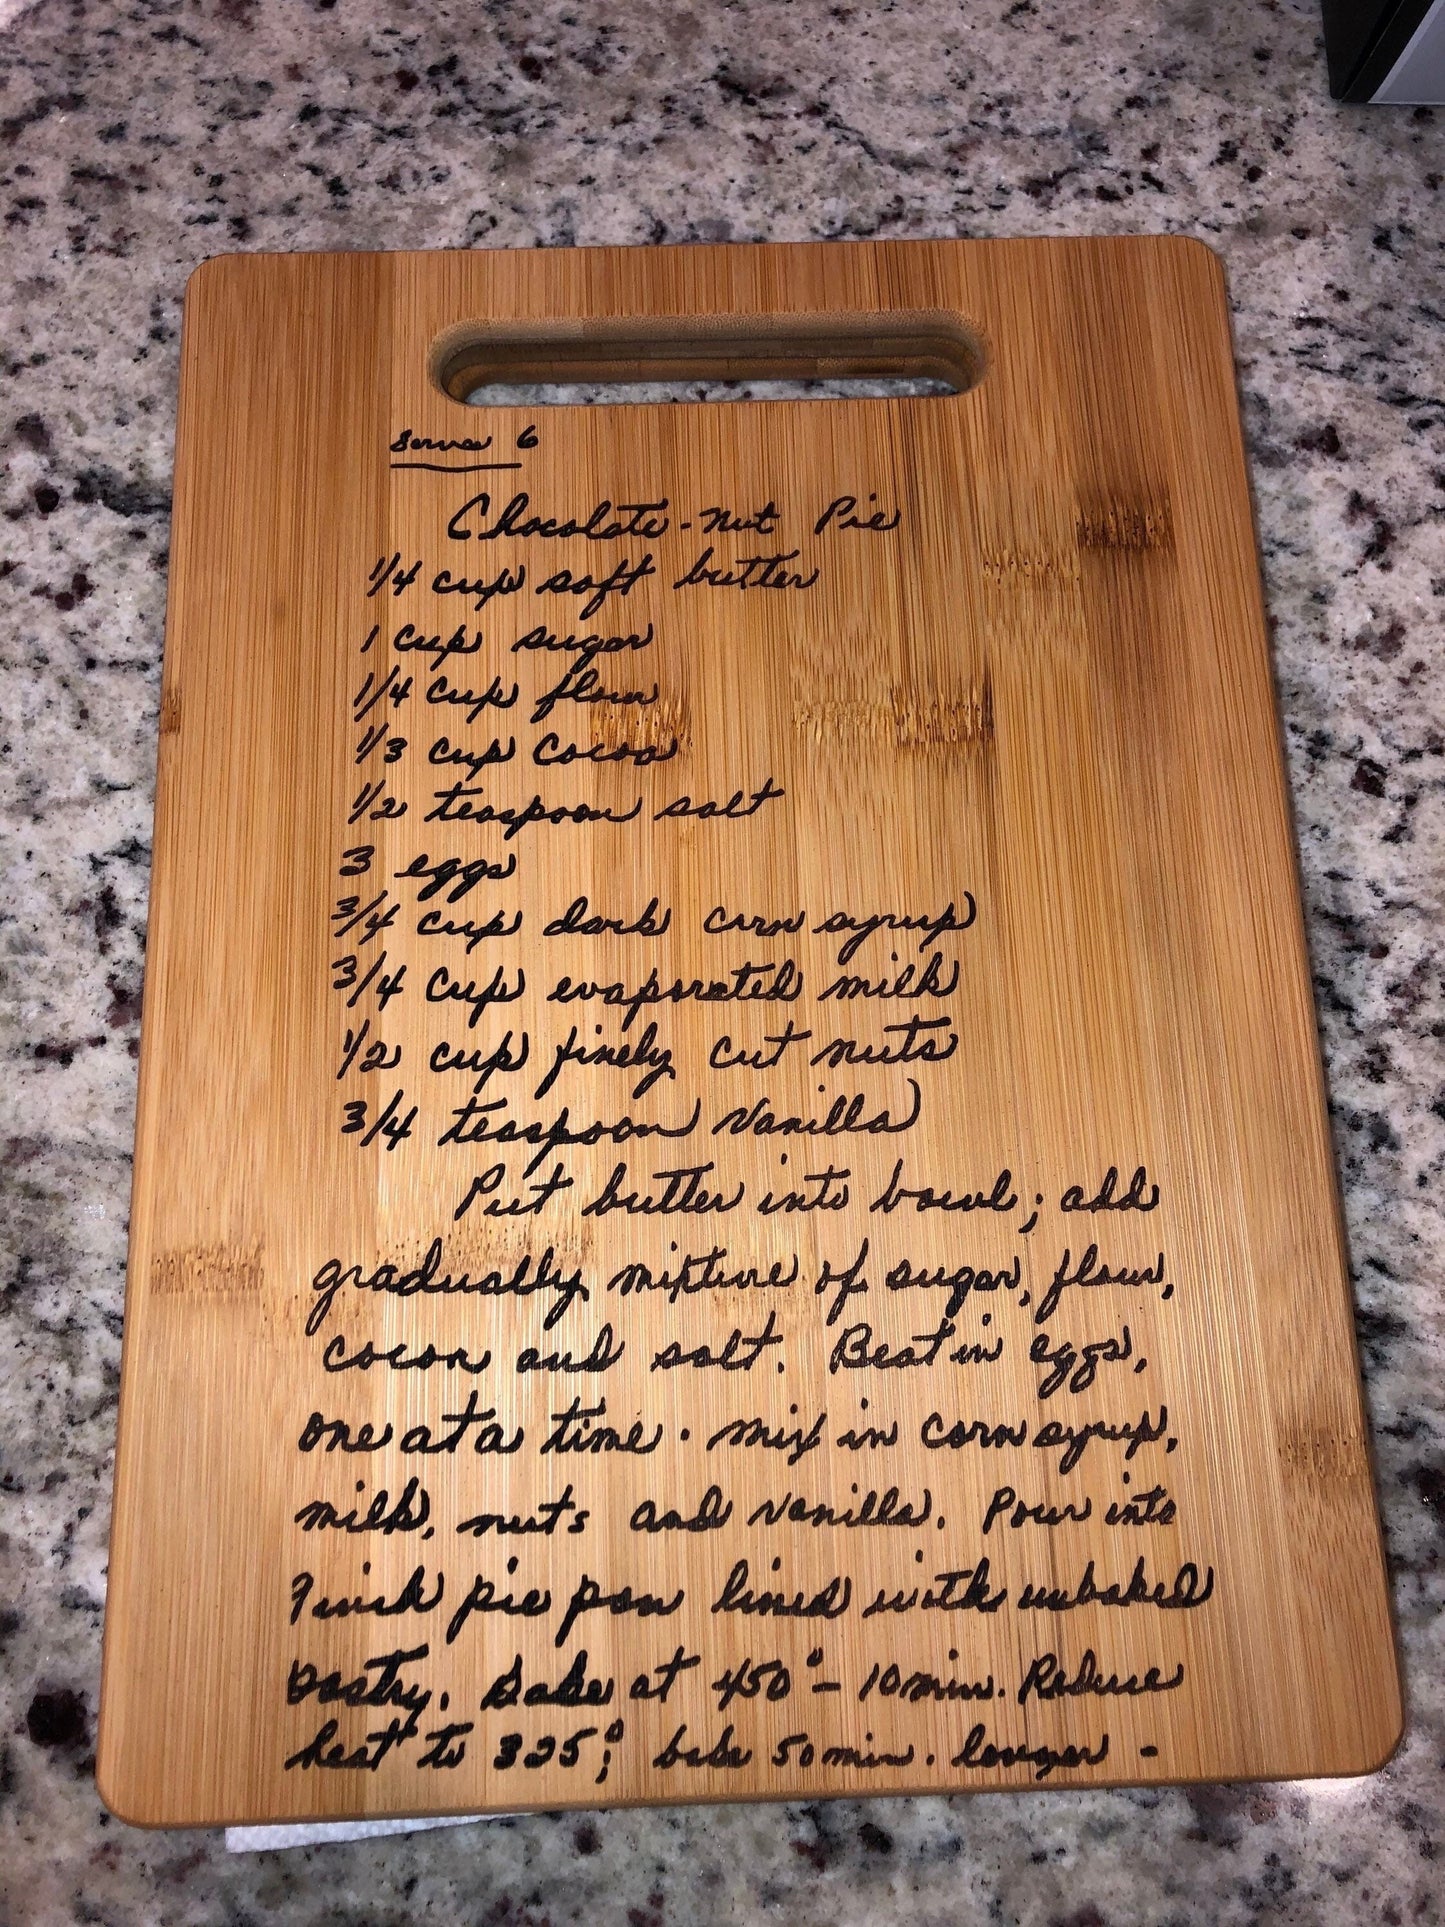 Serves 6
Chocolate-nut Pie
1/4 cup soft butter
1 cup sugar
1/4 cup flour
1/3 cup cocoa
1/2 teaspoon salt
3 eggs
3/4 cup dark corn syrup
3/4 cup evaporated milk
1/2 cup finely cut nuts
3/4 teaspoon vanilla
Put butter into bowl; add
gradually mixture of sugar, flour,
cocoa and salt. Beat in eggs,
one at a time. mix in corn syrup,
milk, nuts and vanilla. Pour into
9 inch pie pan lined with unbaked
pastry. Bake at 450° - 10 min. Reduce
heat to 325°; bake 50 min. longer -